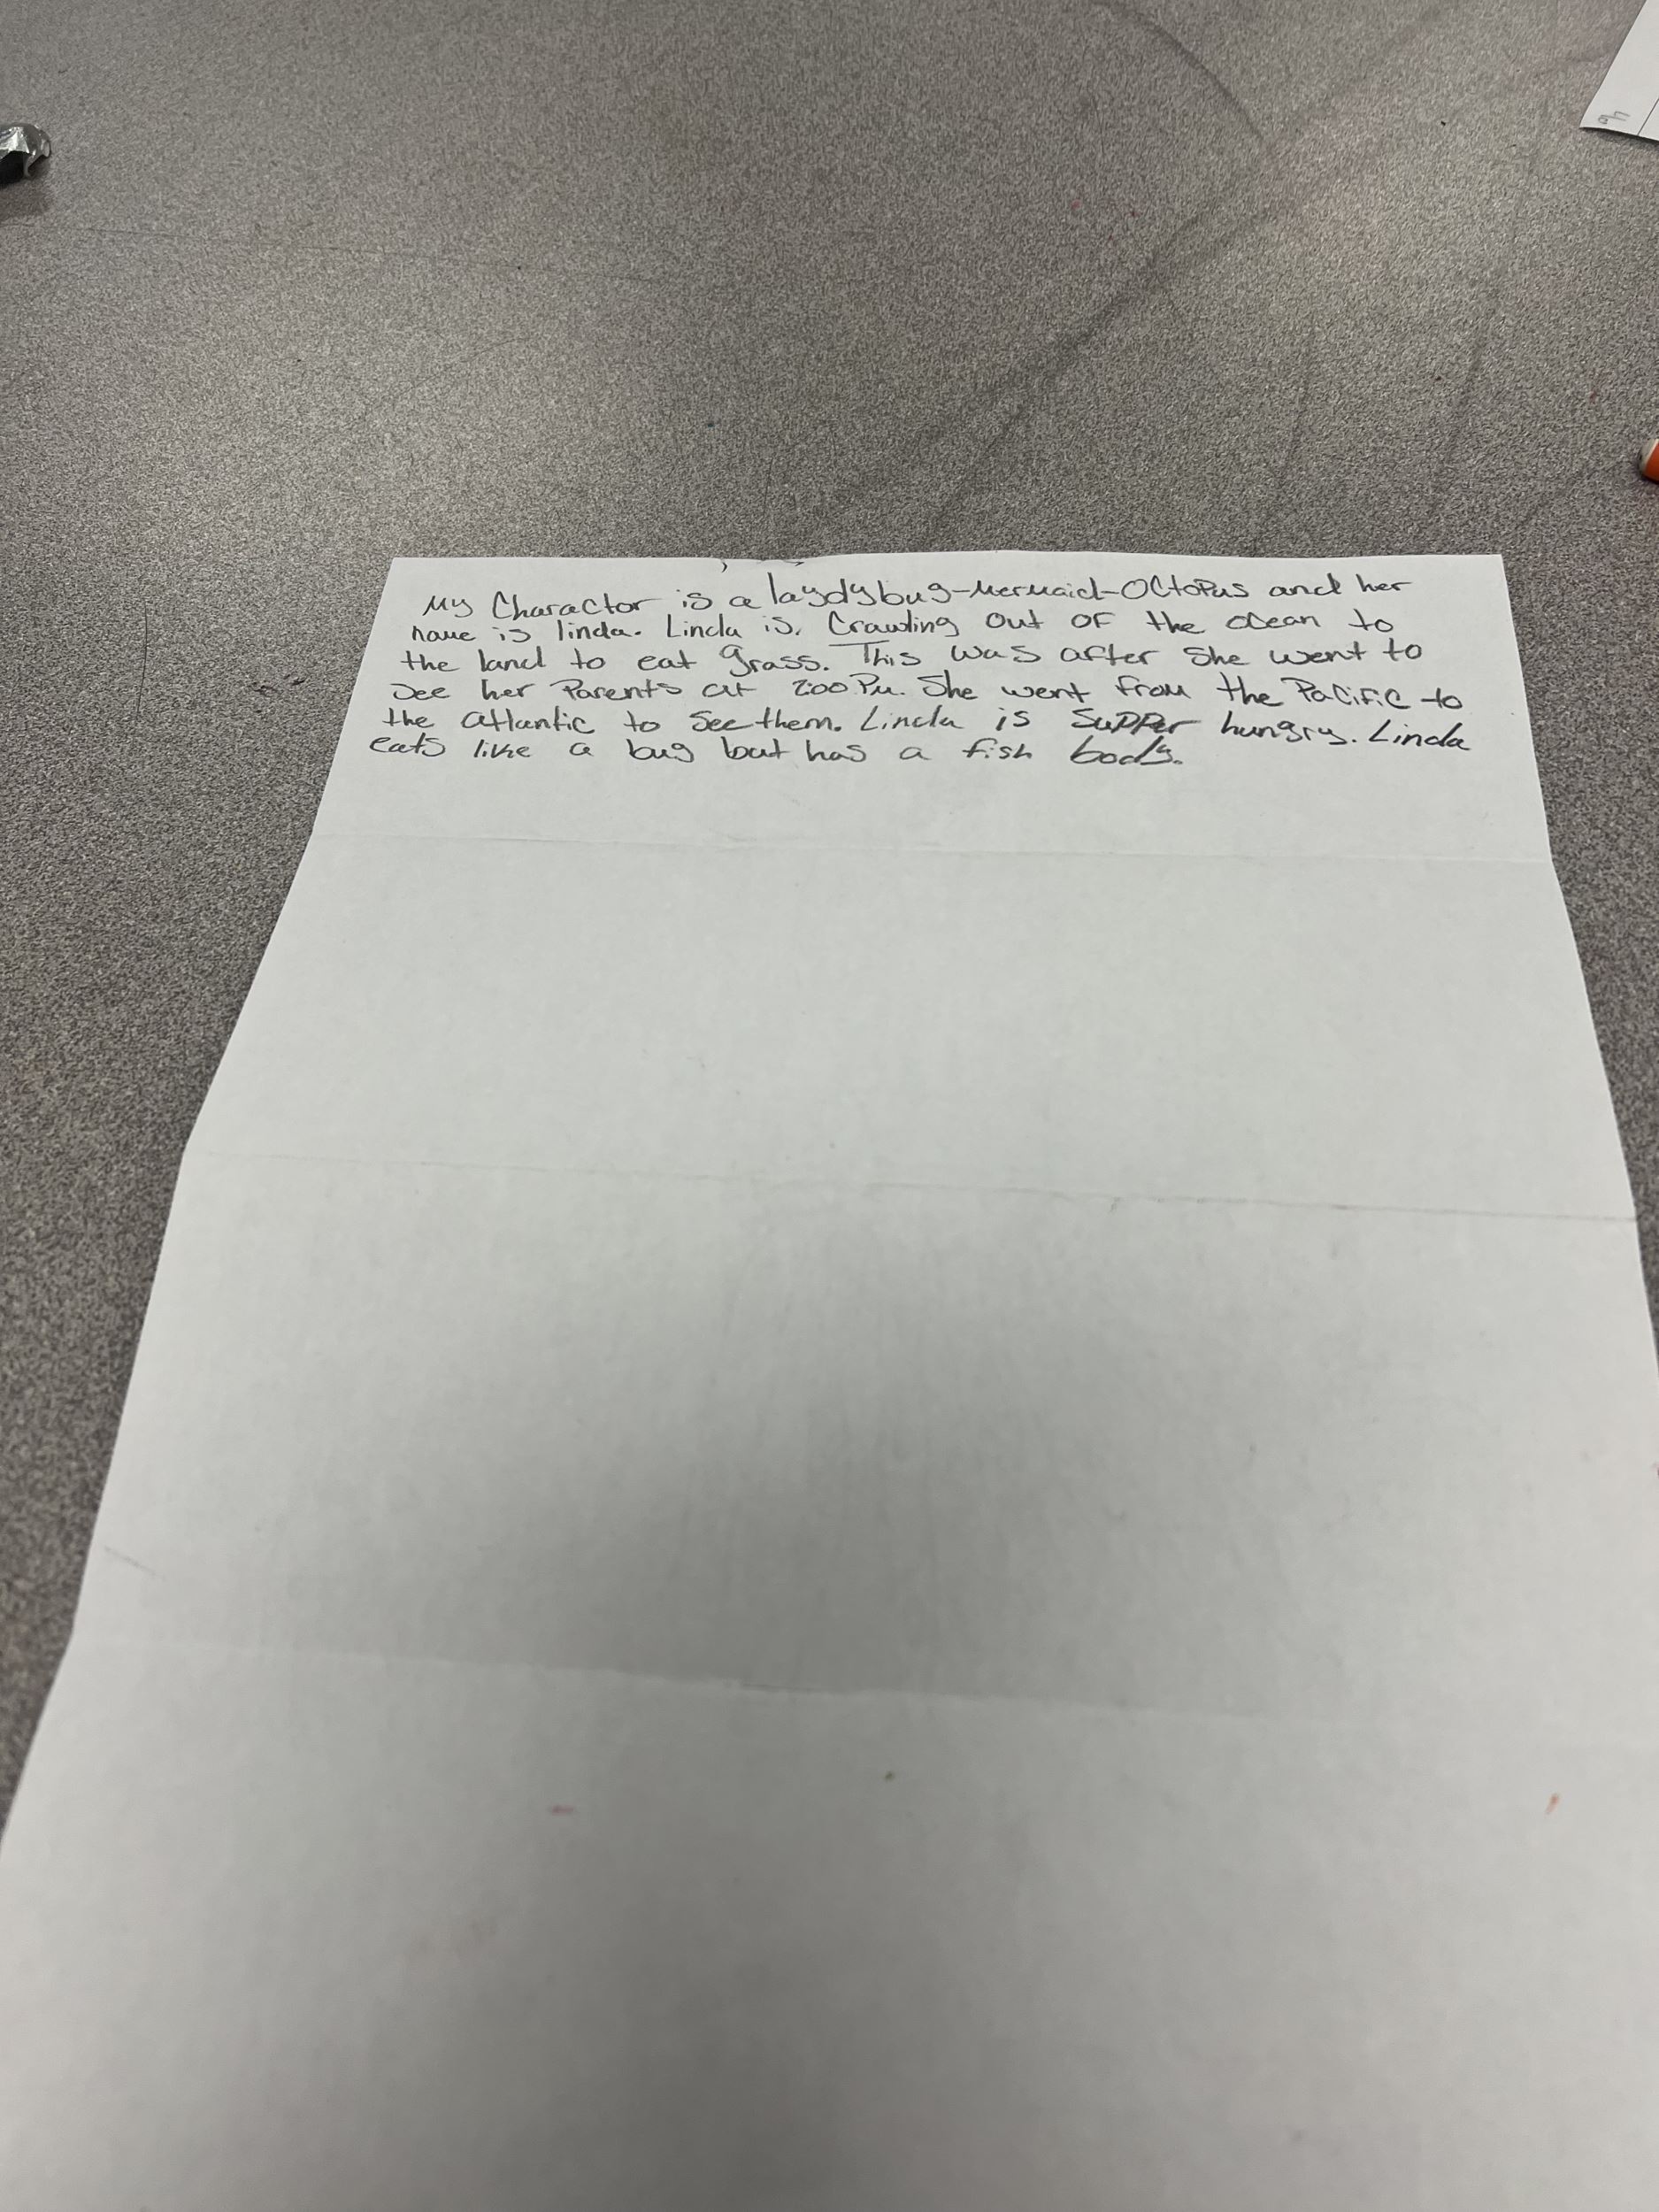 My Charactor is a laydybug-Mermaid-OCtoPus and her
name is linda. Linda is. Crawling out OF the ocean to
the land to eat grass. This was after she went to
see her Parents at 2:00 PM. She went from the PaCific to
the atlantic to See them. Linda is SuPPer hungry. Linda
eats like a bug but has a fish body.